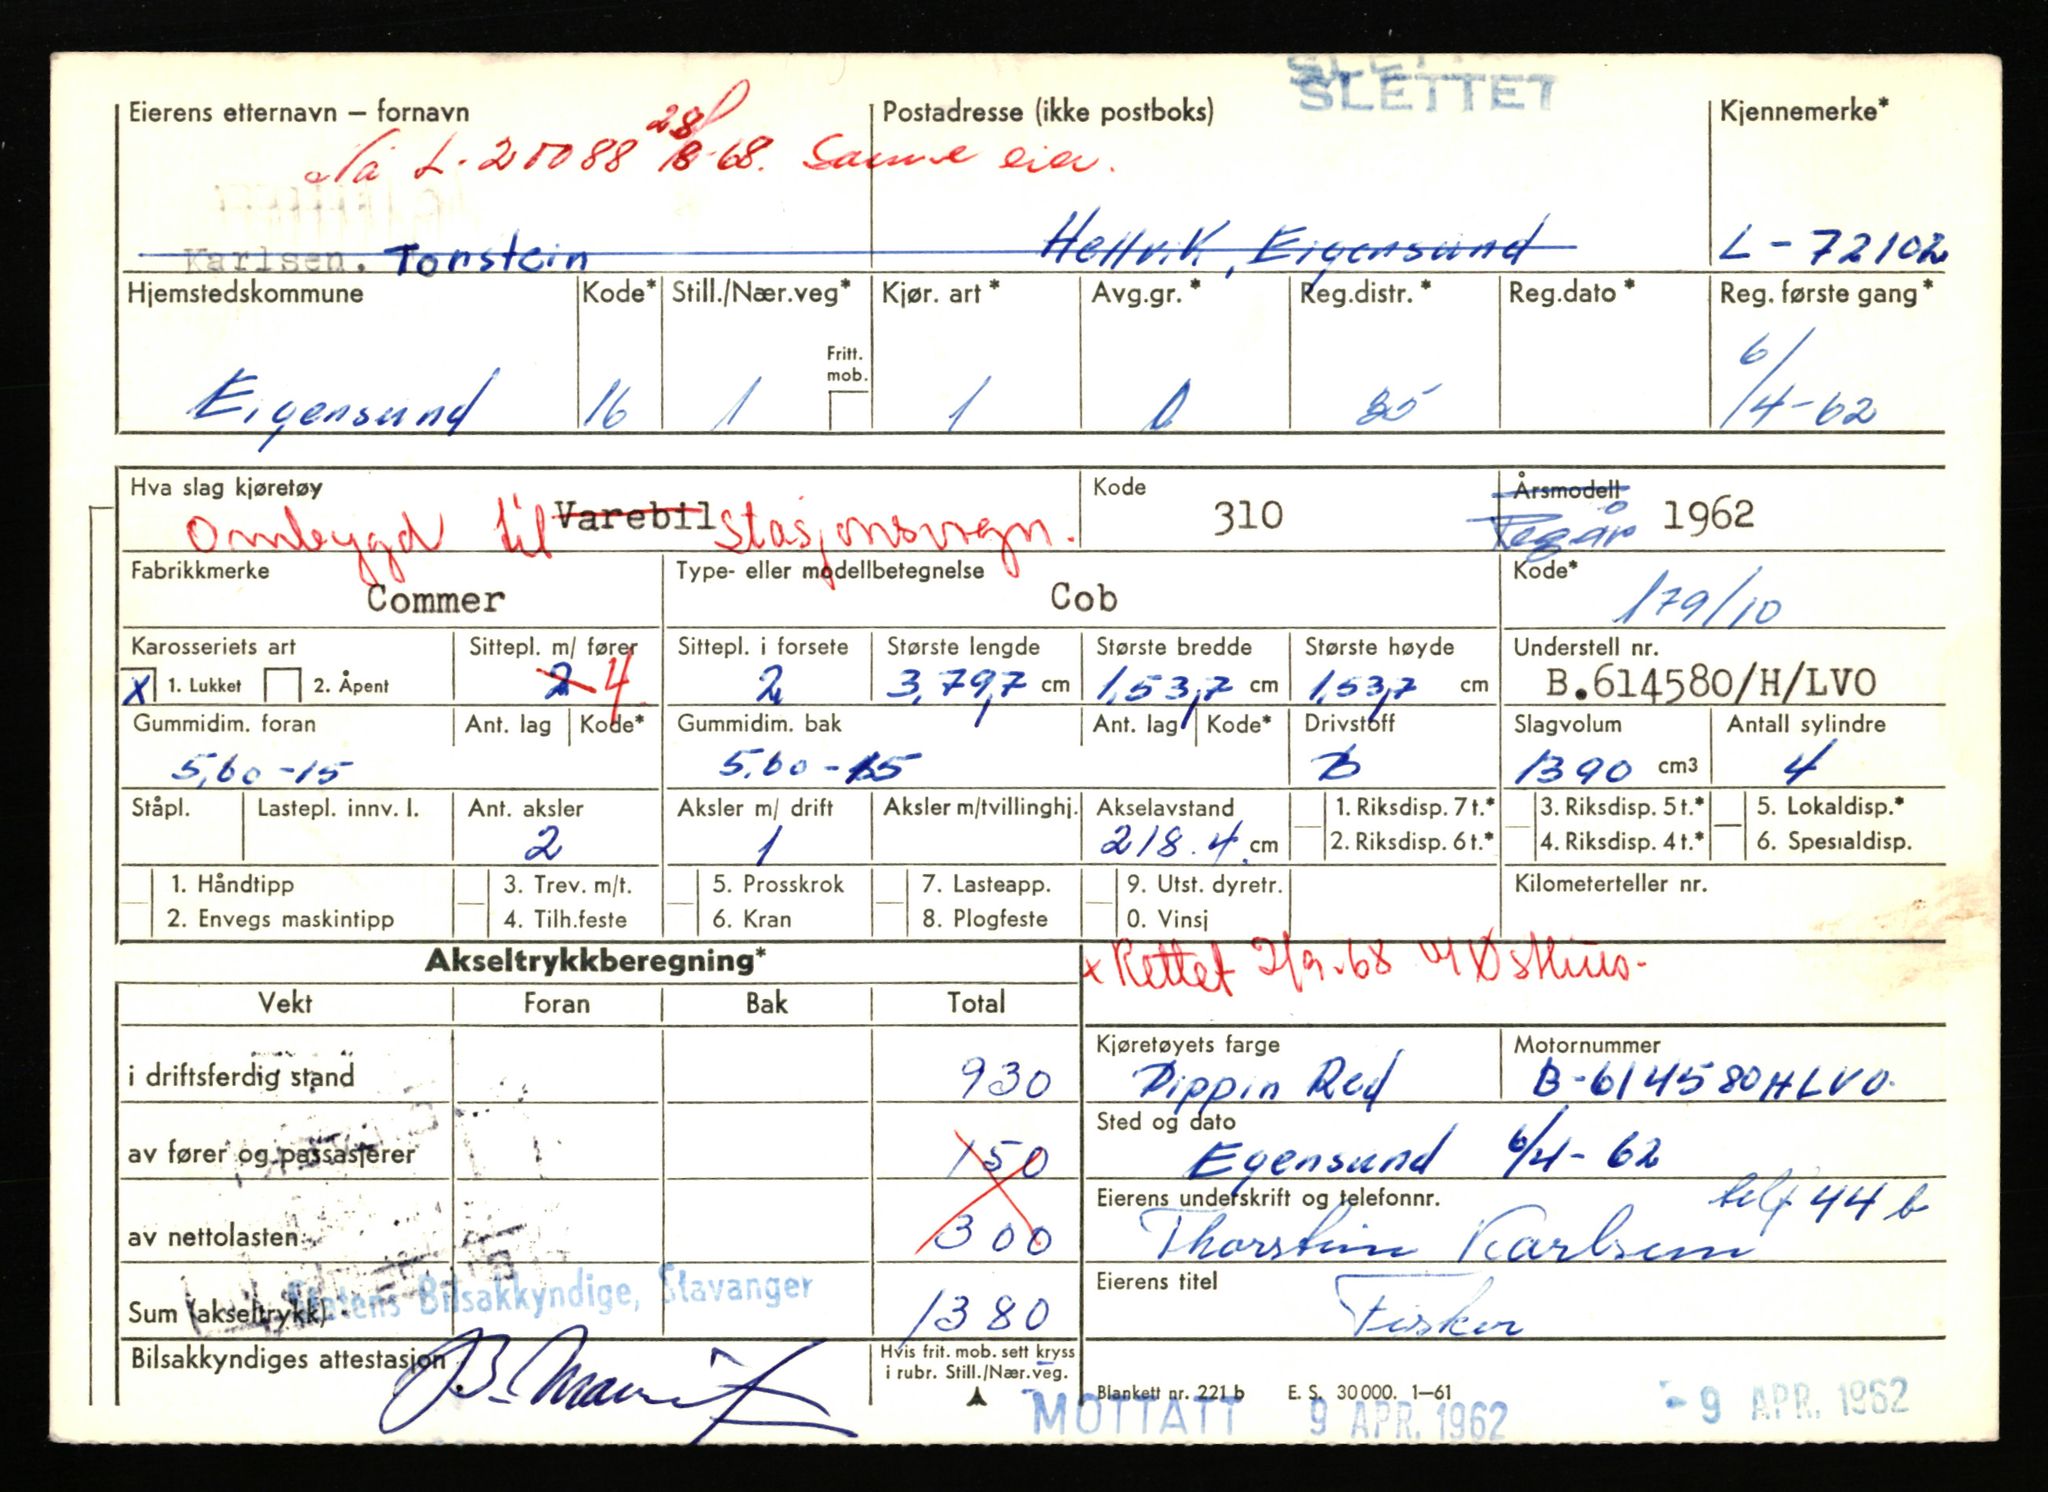 SLETTET
Eierens etternavn – fornavn Postadresse (ikke postboks) Kjennemerke*
Nå L-20088 28/8-68. Samme eier.
Karlsen. Torstein Hellvik, Eigersund L-72102
Hjemstedskommune Kode* Still./Nær.veg* Kjør. art* Avg.gr.* Reg.distr.* Reg.dato* Reg. første gang*
Fritt. mob.
Eigersund 16 1 1 6/4-62
Hva slag kjøretøy Kode Årsmodell
Ombygd til Varebil Stasjonsvogn. 310 Regår 1962
Fabrikkmerke Type- eller modellbetegnelse Kode*
Commer Cob 179/10
Karosseriets art Sittepl. m/ fører Sittepl. i forsete Største lengde Største bredde Største høyde Understell nr.
X 1. Lukket 2. Åpent 2 4 2 3,79,7 cm 1,53,7 cm 1,53,7 cm B.614580/H/LVO
Gummidim. foran Ant. lag Kode* Gummidim. bak Ant. lag Kode* Drivstoff Slagvolum Antall sylindre
5,60-15 5,60-15 B 1390 cm3 4
Ståpl. Lastepl. innv. l. Ant. aksler Aksler m/ drift Aksler m/tvillinghj. Akselavstand 1. Riksdisp. 7 t.* 3. Riksdisp. 5 t.* 5. Lokaldisp.*
2 1 218.4. cm 2. Riksdisp. 6 t.* 4. Riksdisp. 4 t.* 6. Spesialdisp.
1. Håndtipp 3. Trev. m/t. 5. Prosskrok 7. Lasteapp. 9. Utst. dyretr. Kilometerteller nr.
2. Envegs maskintipp 4. Tilh.feste 6. Kran 8. Plogfeste 0. Vinsj
Akseltrykkberegning* x Rettet 2/9-68 Østhus.
Vekt Foran Bak Total
Kjøretøyets farge Motornummer
i driftsferdig stand 930 Pippin Red B-614580HLVO
Sted og dato
av fører og passasjerer 150 Egersund 6/4-62
Eierens underskrift og telefonnr. telf 44 b
av nettolasten 300 Thorstein Karlsen
Eierens titel
Statens Bilsakkyndige, Stavanger
Sum (akseltrykk) 1380 Fisker
Bilsakkyndiges attestasjon Hvis frit. mob. sett kryss
i rubr. Still./Nær.veg.
Blankett nr. 221 b E. S. 30 000. 1–61
MOTTATT 9 APR. 1962 - 9 APR. 1962